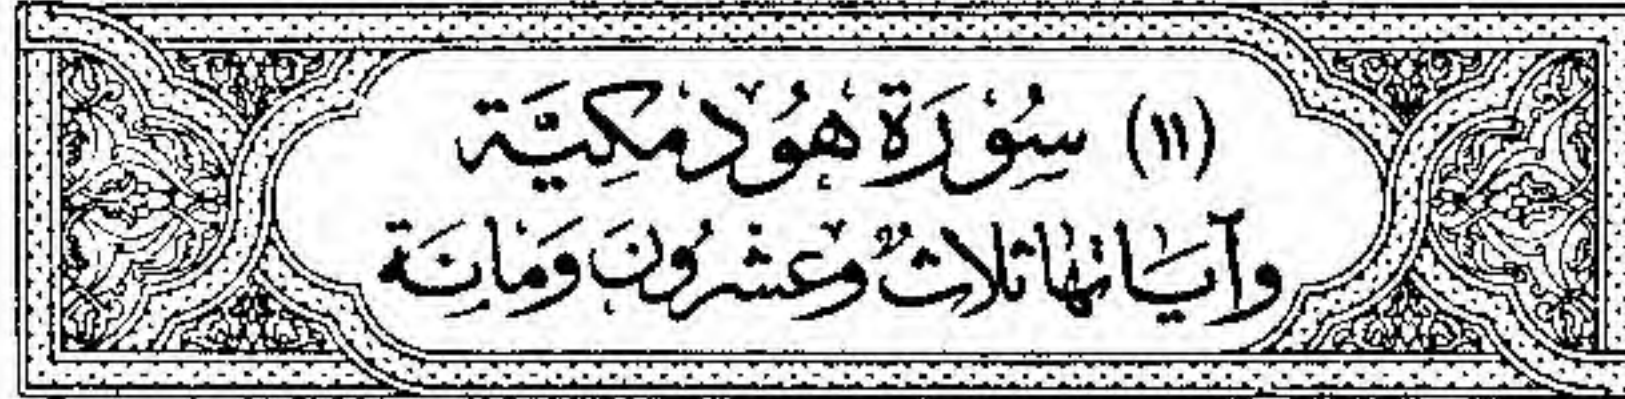 (١١) سُوْرَة هُوْد مَكِيَّة
وآيَاتهَا ثلاثٌ وعشرُونَ وَمائَة